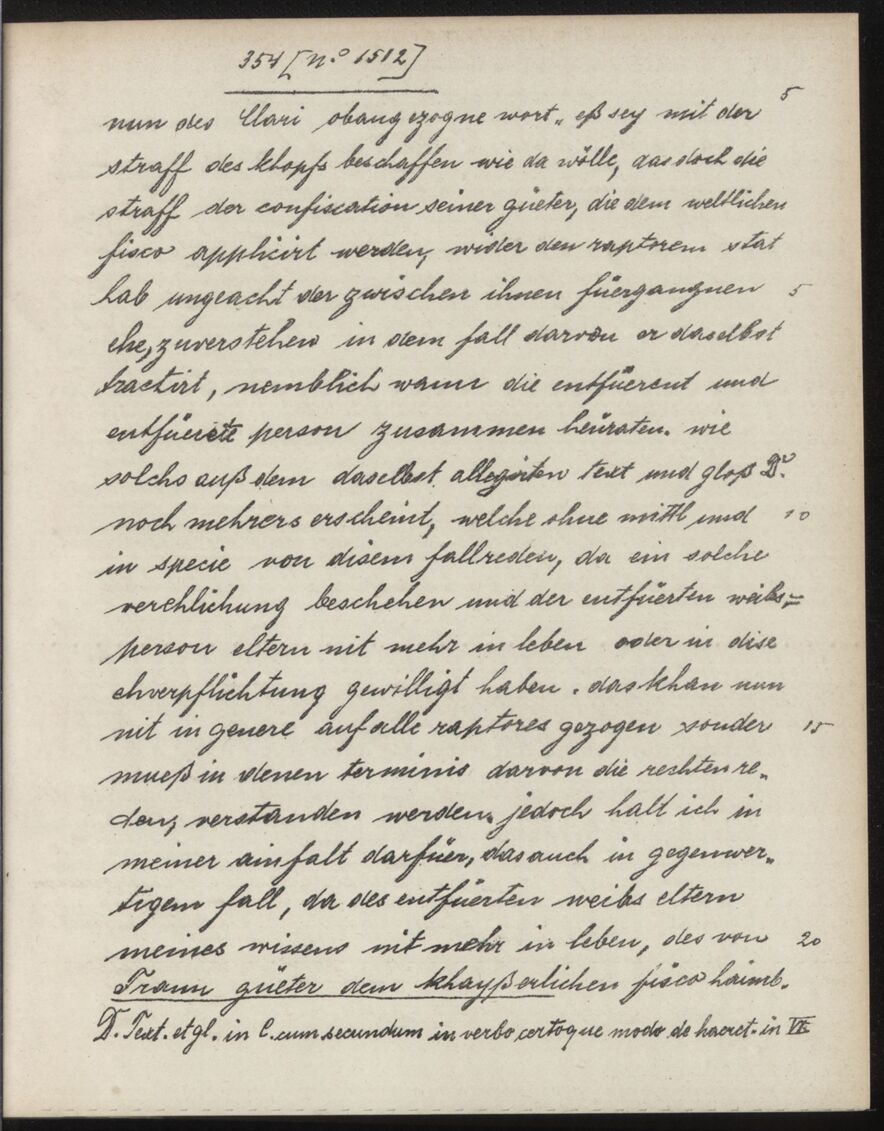 354 [n.o 1512]
5
nun des Clari obangezogne wort „ eß sey mit der
straff des khopfs beschaffen wie da wölle, das doch die
straff der confiscation seiner güeter, die dem weltlichen
fisco applicirt werden, wider den raptorem stat
hab ungeacht der zwischen ihnen füergangnen 5
ehe, zuverstehen in dem fall darvon er daselbst
tractirt, nemblich wann die entfüerent und
entfüerete person zusammen heüraten. wie
solchs auß dem daselbst allegirten text und gloß D.
noch mehrers erscheint, welche ohne mittl und 10
in specie von disem fall reden, da ein solche
verehlichung beschehen und der entfüerten weibs-
person eltern nit mehr in leben oder in dise
ehverpflichtung gewilligt haben. das khan nun
nit in genere auf alle raptores gezogen sonder 15
mueß in denen terminis darvon die rechten re„
den, verstanden werden. jedoch halt ich in
meiner ainfalt darfüer, das auch in gegenwer„
tigem fall, da des entfüerten weibs eltern
meines wissens nit mehr in leben, des von 20
Traun güeter dem khayßerlichen fisco haimb.
D. Text. et gl. in C. cum secundum in verbo certoque modo de haeret. in VI